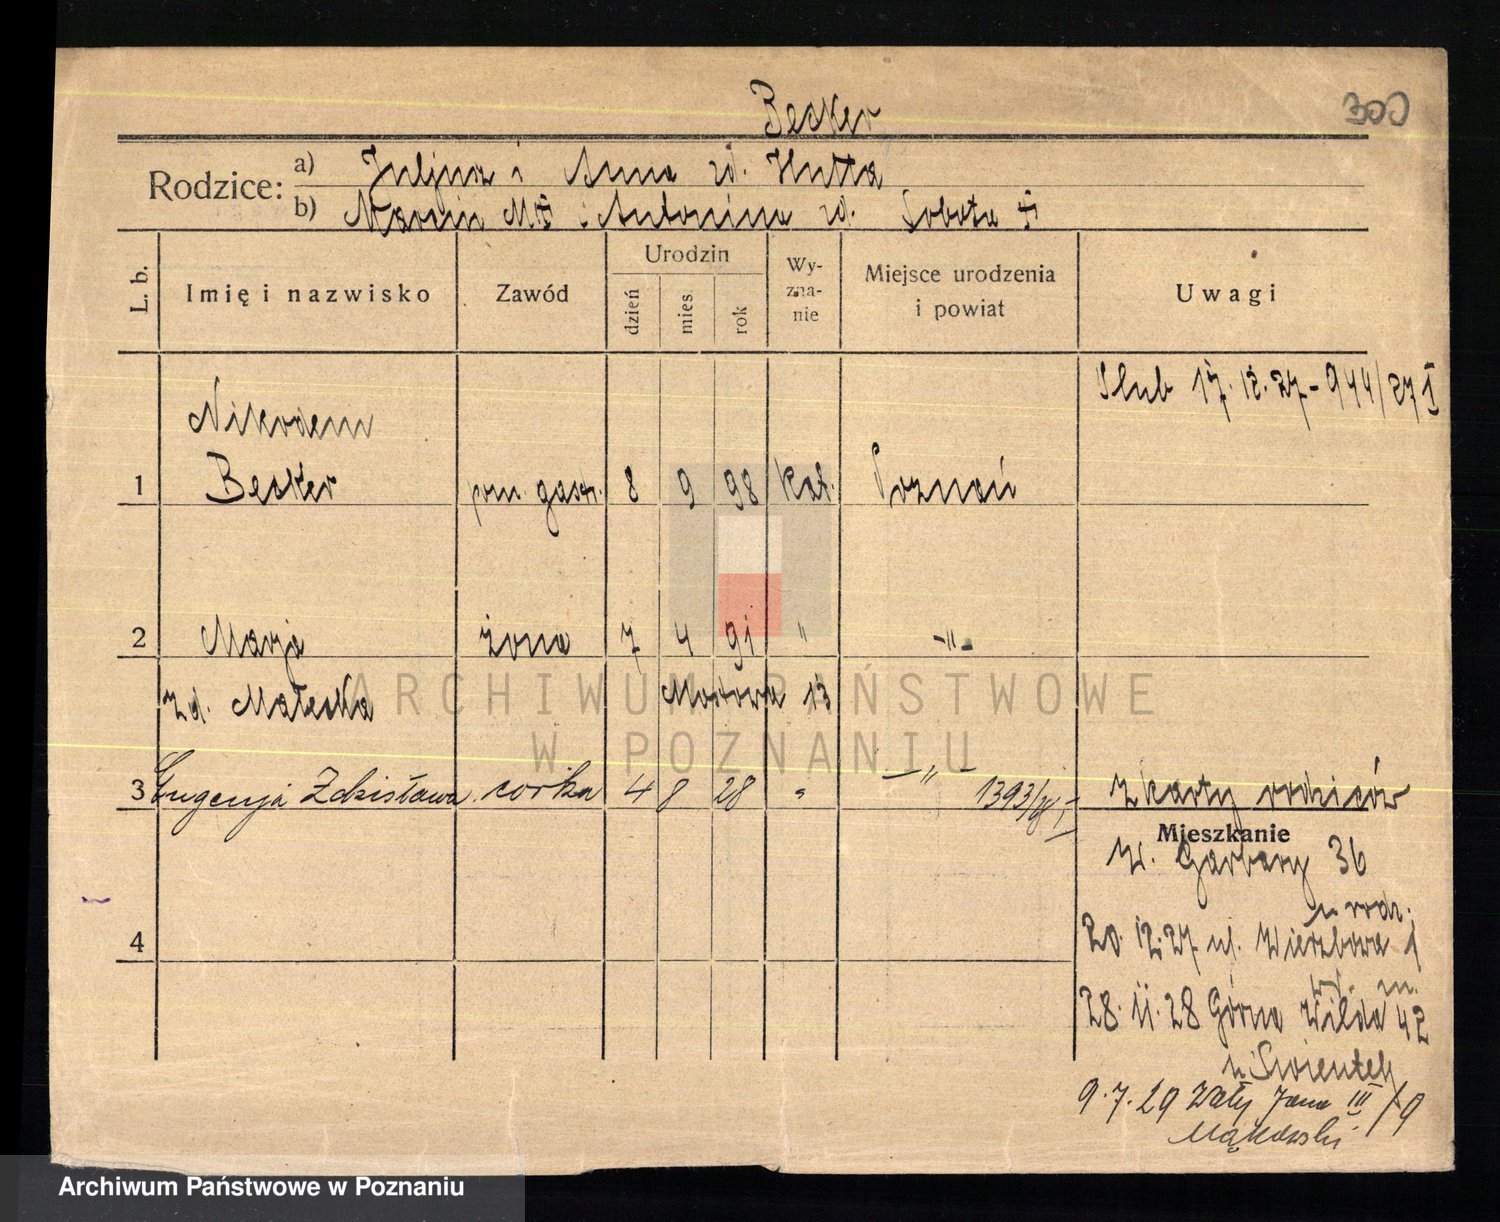 Becker
300
Rodzice:
a) Juljusz i Anna zd. Hutta
b) Marcin i Antonina zd. Sobota
L. b.
Imię i nazwisko
Zawód
Urodzin
dzień
mies.
rok
Wy-
zna-
nie
Miejsce urodzenia
i powiat
Uwagi
Ślub 17.12.27 - 944/27 I
Nikodem
1 Becker pom. gastr. 8 9 98 kat. Poznań
2 Marja żona 7 4 91 " -"-
zd. Małecka Mostowa 13
3 Eugenja Zdzisława córka 4 8 28 " -"- 1393/
z karty rodziców
Mieszkanie
W. Garbary 36
u rodz.
4
20.12.27 ul. Wierzbowa 1
wł. m.
28.11.28 Górna Wilda 42
u Swientek
9.7.29 Wały Jana III / 9
Mąkowski
ARCHIWUM PAŃSTWOWE
W POZNANIU
Archiwum Państwowe w Poznaniu